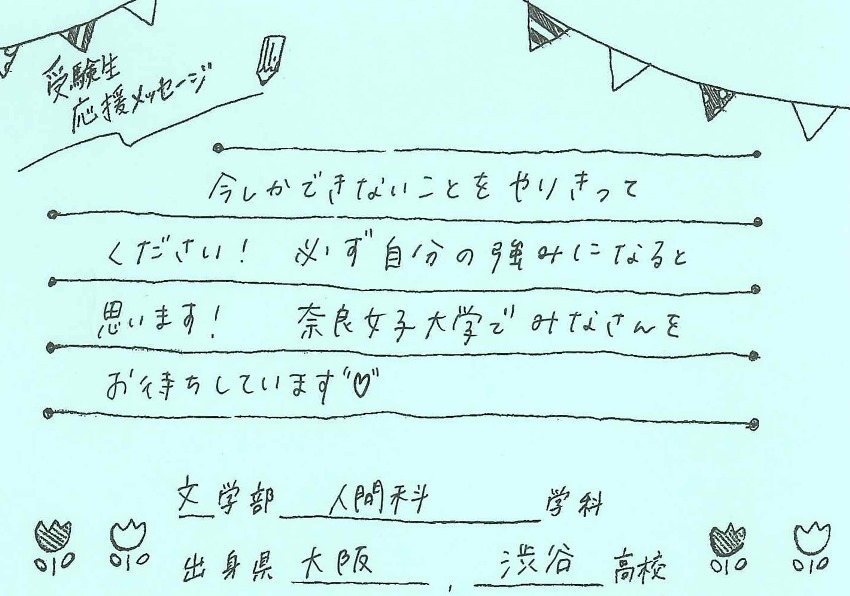 受験生
応援メッセージ
今しかできないことをやりきって
ください! 必ず自分の強みになると
思います! 奈良女子大学でみなさんを
お待ちしています"♡"
文学部 人間科 学科
出身県 大阪 , 渋谷 高校